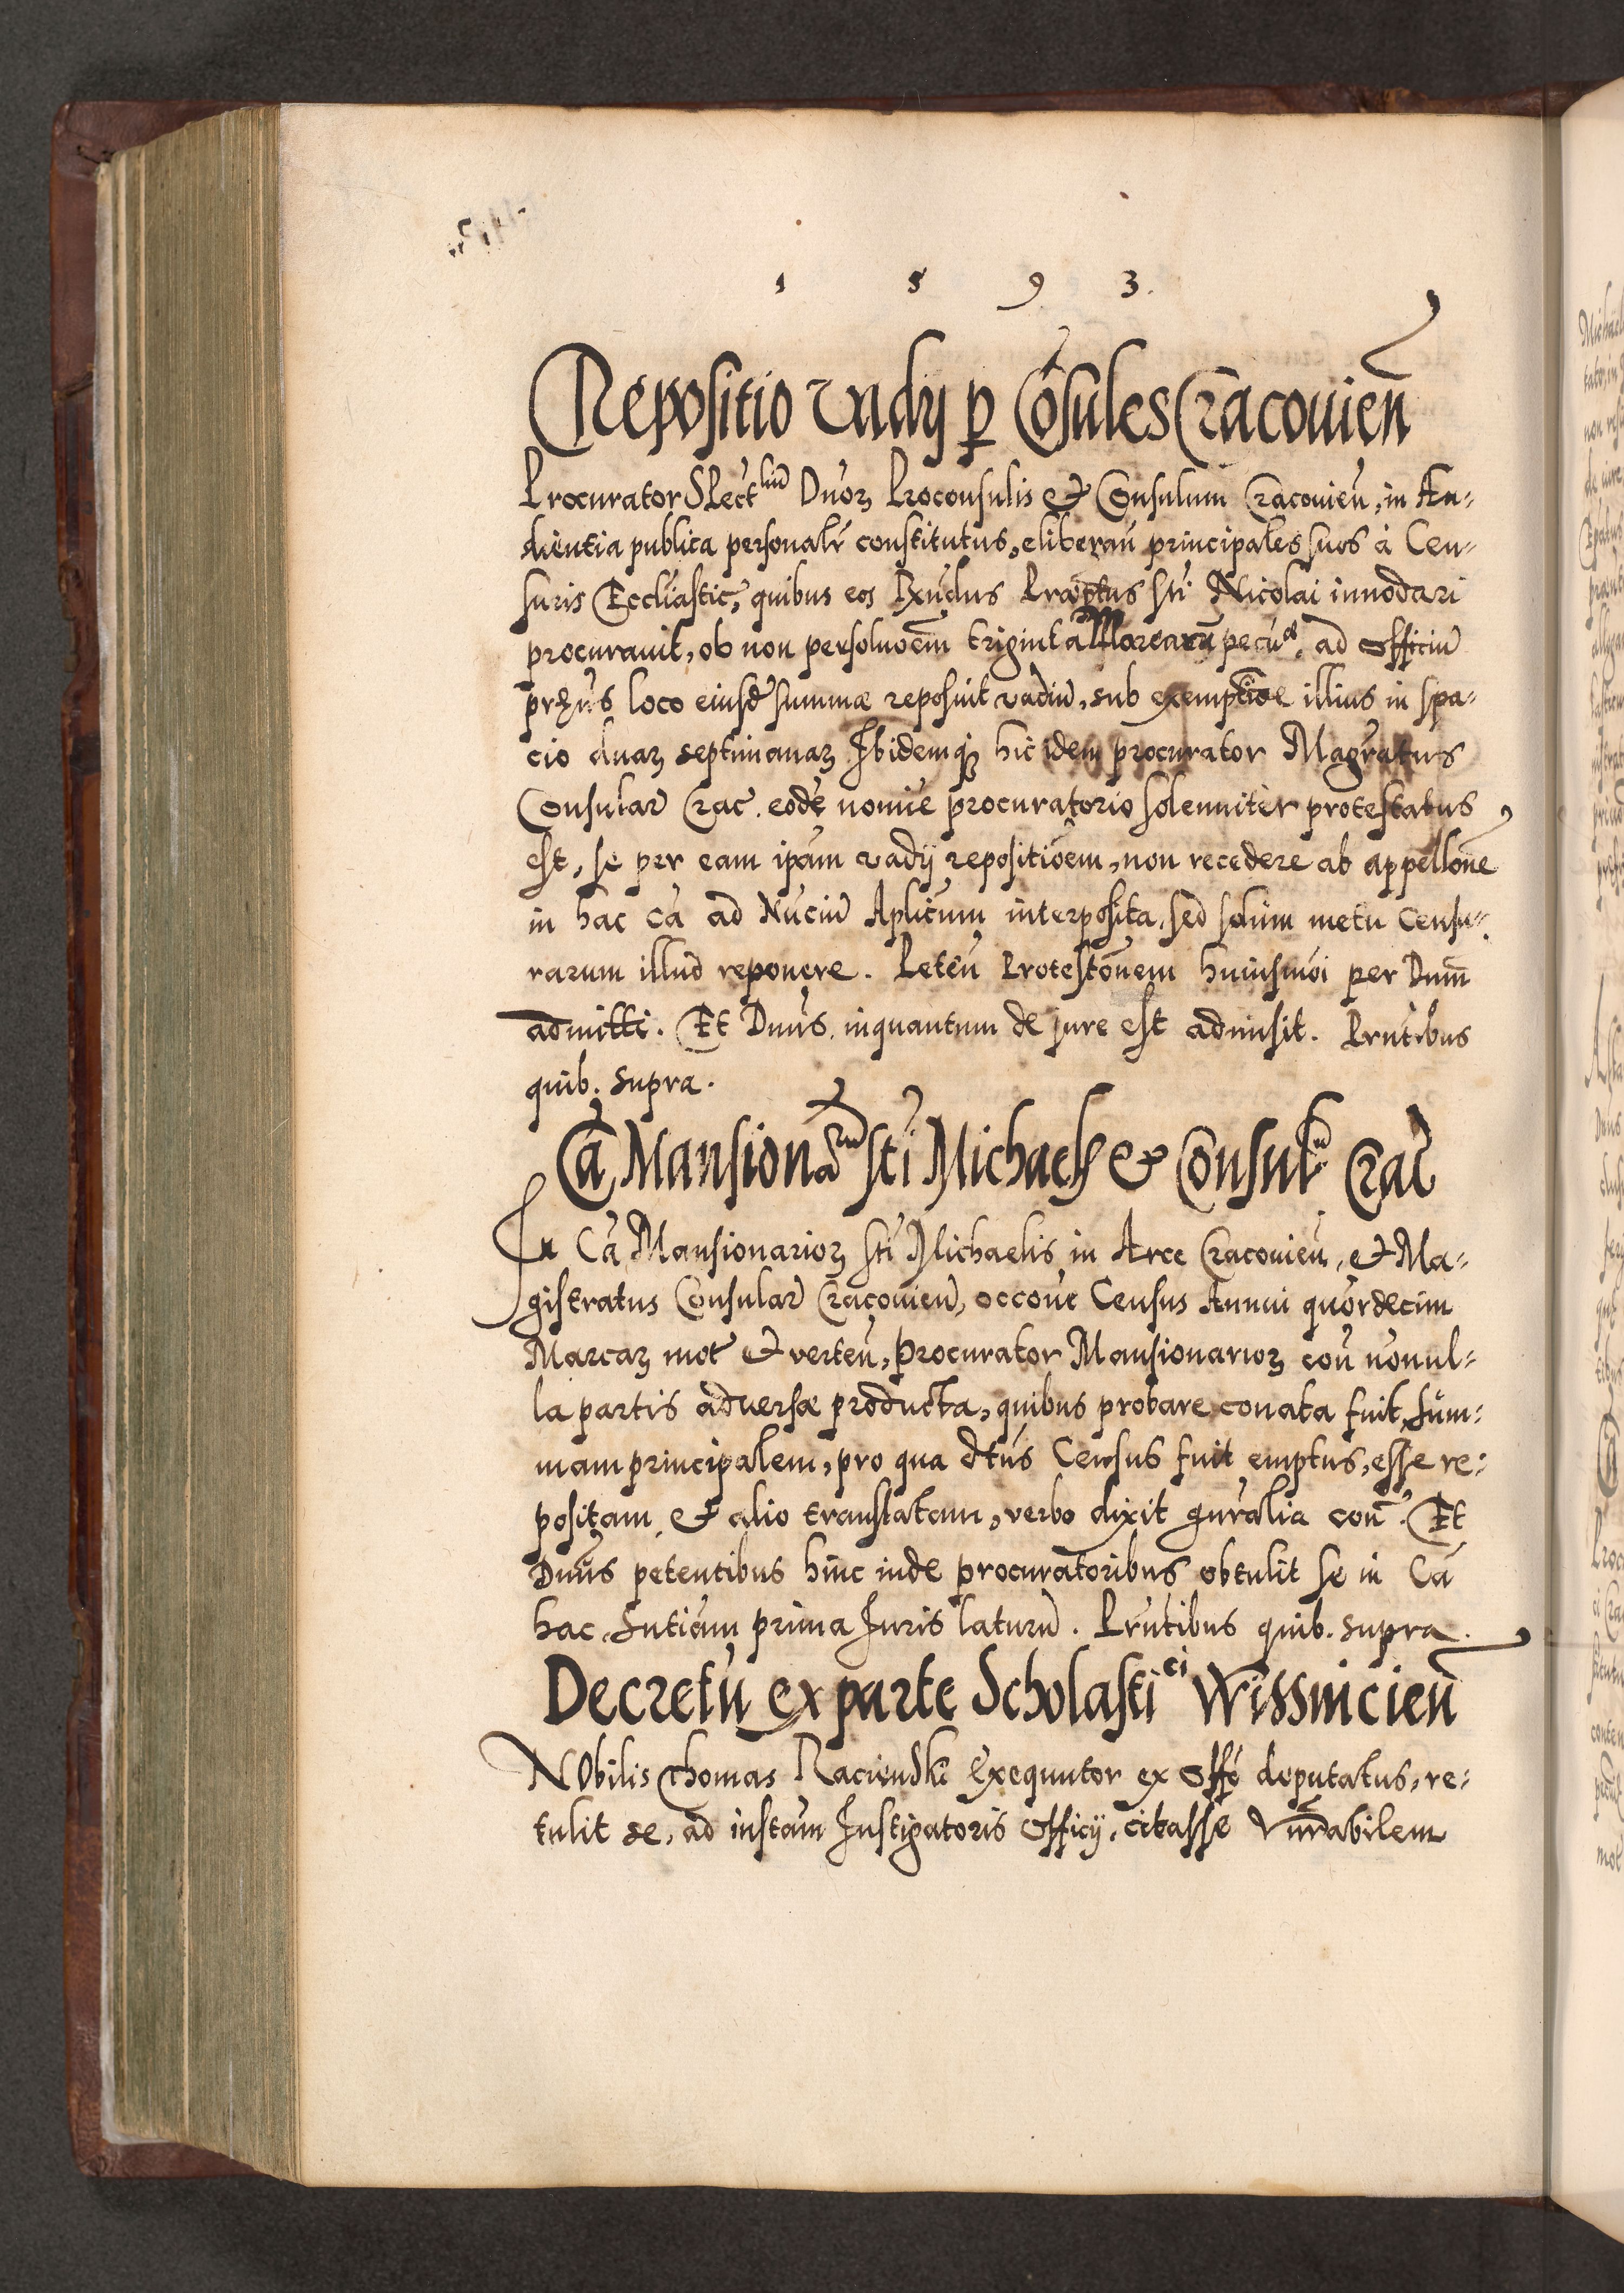 1 5 9 3.
Repositio vadij p Cõsules Cracouien̄
Procurator Spect^liũ Dnorꝝ Proconsulis et Consulum Cracouień, in Au-
dientia publica personalr̃ constitutus, eliberań principales suos à Cen-
suris Eccliastic, quibus eos Pręptus sti Nicolai innodari
procurauit, ob non persoluoem̃ triginta Marcarũ pecu^ae, ad Officiũ
prñs loco eiusd̃ summæ reposuit vadiũ, sub exemptioe illius in spa-
cio duaꝝ septimanaꝝ Ibidemqꝫ hic idem procurator Magratus
Consular̃ Crac. eodẽ nomĩe procuratorio solenniter protestatus
est, se per eam ipãm vadij repositiõem, non recedere ab appellõne
in hac cã ad Nũciũ Aplicum interposita, sed solùm metu Censu-
rarum illud reponere. Peteń Protestõnem huiusmõi per Dnm̃
admitti. Et Dnũs inquantum de jure est admisit. Prńtibus
quib. supra.
Cã Mansionar^um sti Michaelis et Consul^um Crac̃
In Cã Mansionarioꝝ sti Michaelis in Arce Cracouień, et Ma-
gistratus Consular̃ Cracouieñ, occõne Census Annui quordecim
Marcaꝝ mot̃ et verteń, Procurator Mansionarioꝝ coñ nonul-
la partis aduersæ producta, quibus probare conata fuit, sum-
mam principalem, pro qua dtũs Census fuit emptus, esse re-
positam et alio translatam, verbo dixit gńralia coñ. Et
Dnũs petentibus hinc inde procuratoribus obtulit se in Cã
hac, sntiãm prima Juris laturũ. Prńtibus quib. supra.
Decretũ ex parte Scholasti^ci Wissnicień
NObilis Thomas Racienski Exequutor ex Offõ deputatus, re-
tulit se, ad instãm Instigatoris Officij, citasse Vnrãbilem